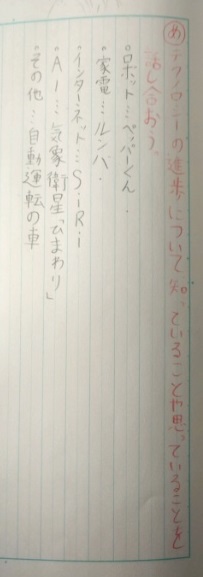 め テクノロジーの進歩について知っていることや思っていることを
話し合おう。
。ロボット…ペッパーくん.
。家電…ルンバ.
。インターネット…SiRi
。AI…気象衛星「ひまわり」
。その他…自動運転の車